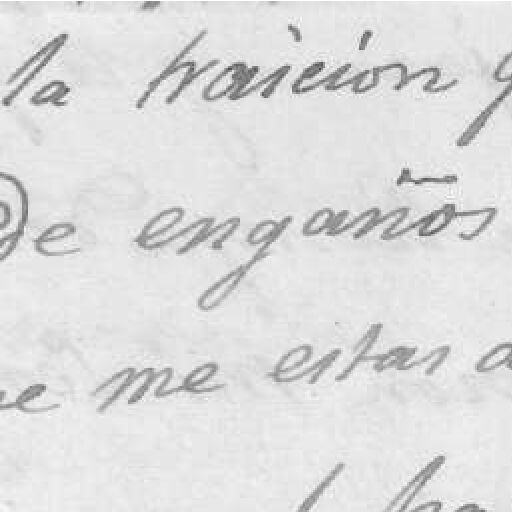 la traicion
De engaños
me estas